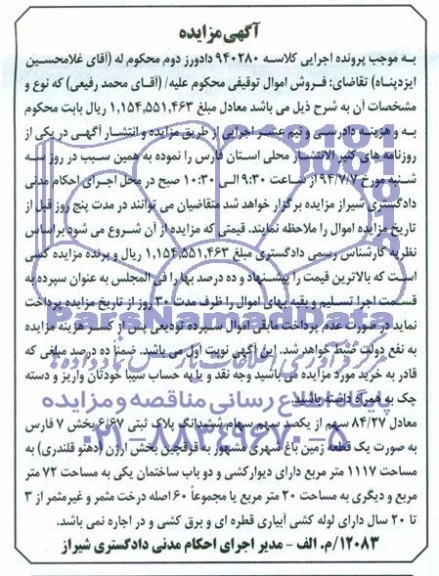 آگهی مزایده
به موجب پرونده اجرایی کلاسه ۹۴۰۲۸۰ دادورز دوم محکوم له (آقای غلامحسین
ایزدپناه) تقاضای: فروش اموال توقیفی محکوم علیه/ (آقای محمد رفیعی) که نوع و
مشخصات آن به شرح ذیل می باشد معادل مبلغ ۱,۱۵۴,۵۵۱,۴۶۳ ریال بابت محکوم
به و هزینه دادرسی و نیم عشر اجرایی از طریق مزایده و انتشار آگهی در یکی از
روزنامه های کثیر الانتشار محلی استان فارس را نموده به همین سبب در روز سه
شنبه مورخ ۹۴/۷/۷ از ساعت ۹:۳۰ الی ۱۰:۳۰ صبح در محل اجرای احکام مدنی
دادگستری شیراز مزایده برگزار خواهد شد متقاضیان می توانند در مدت پنج روز قبل از
تاریخ مزایده اموال را ملاحظه نمایند. قیمتی که مزایده از آن شروع می شود براساس
نظریه کارشناس رسمی دادگستری مبلغ ۱,۱۵۴,۵۵۱,۴۶۳ ریال و برنده مزایده کسی
است که بالاترین قیمت را پیشنهاد و ده درصد بها را فی المجلس به عنوان سپرده به
قسمت اجرا تسلیم و بقیه بهای اموال را ظرف مدت ۳۰ روز از تاریخ مزایده پرداخت
نماید در صورت عدم پرداخت مابقی اموال سپرده تودیعی پس از کسر هزینه مزایده
به نفع دولت ضبط خواهد شد. این آگهی نوبت اول می باشد. ضمنا ده درصد مبلغی که
قادر به خرید مورد مزایده می باشید وجه نقد و یا به حساب سیبا خودتان واریز و دسته
چک به همراه داشته باشید.
معادل ۸۴/۲۷ سهم از یکصد سهم سهام ششدانگ پلاک ثبتی ۶/۶۷ بخش ۷ فارس
به صورت یک قطعه زمین باغ شهری مشهور به قرقچین بخش ارژن (دهنو قلندری) به
مساحت ۱۱۱۷ متر مربع دارای دیوارکشی و دو باب ساختمان یکی به مساحت ۷۲ متر
مربع و دیگری به مساحت ۲۰ متر مربع با مجموعاً ۶۰ اصله درخت مثمر و غیرمثمر از ۳
تا ۲۰ سال دارای لوله کشی آبیاری قطره ای و برق کشی و در اجاره نمی باشد.
۱۲۰۸۳/م. الف - مدیر اجرای احکام مدنی دادگستری شیراز
ParsNamadData
پایگاه اطلاع رسانی مناقصه و مزایده
۰۲۱-۸۸۳۴۹۶۷۰-۵